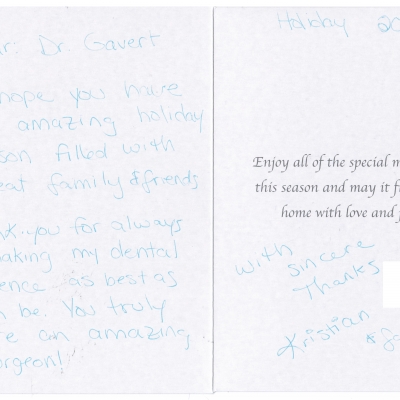 r: Dr. Gavert
hope you have
amazing holiday
son filled with
eat family & friends
nk-you for always
aking my dental
ence as best as
n be. You truly
re an amazing
urgeon!
Holiday 20
Enjoy all of the special m
this season and may it f
home with love and
With sincere
Thanks
Kristian